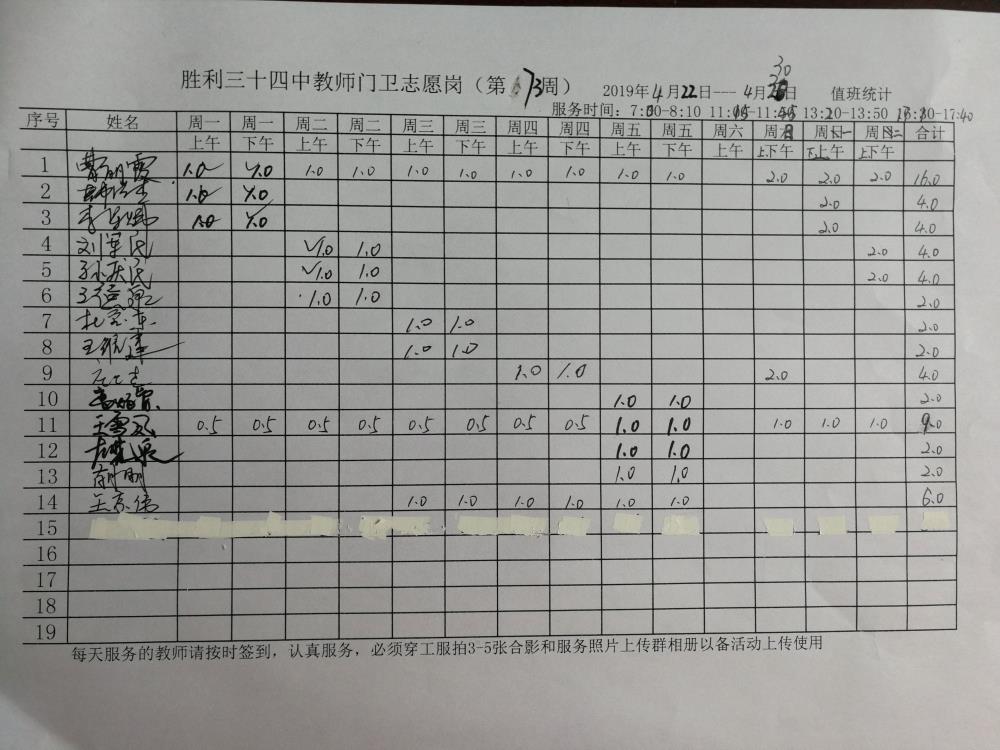 胜利三十四中教师门卫志愿岗（第173周） 2019年4月22日---4月30日 值班统计
服务时间：7:30-8:10 11:05-11:45 13:20-13:50 -17:40
序号 姓名 周一 周一 周二 周二 周三 周三 周四 周四 周五 周五 周六 周日 周一 周二 合计
上午 下午 上午 下午 上午 下午 上午 下午 上午 下午 上午 上下午 下上午 上下午
1 1.0 1.0 1.0 1.0 1.0 1.0 1.0 1.0 1.0 1.0 2.0 2.0 2.0 16.0
2 1.0 1.0 2.0 4.0
3 1.0 1.0 2.0 4.0
4 刘军民 1.0 1.0 2.0 4.0
5 孙庆民 1.0 1.0 2.0 4.0
6 1.0 1.0 2.0
7 杜京东 1.0 1.0 2.0
8 1.0 1.0 2.0
9 1.0 1.0 2.0 4.0
10 1.0 1.0 2.0
11 王雪风 0.5 0.5 0.5 0.5 0.5 0.5 0.5 0.5 1.0 1.0 1.0 1.0 1.0 9.0
12 1.0 1.0 2.0
13 1.0 1.0 2.0
14 王京伟 1.0 1.0 1.0 1.0 1.0 1.0 6.0
15
16
17
18
19
每天服务的教师请按时签到，认真服务，必须穿工服拍3-5张合影和服务照片上传群相册以备活动上传使用